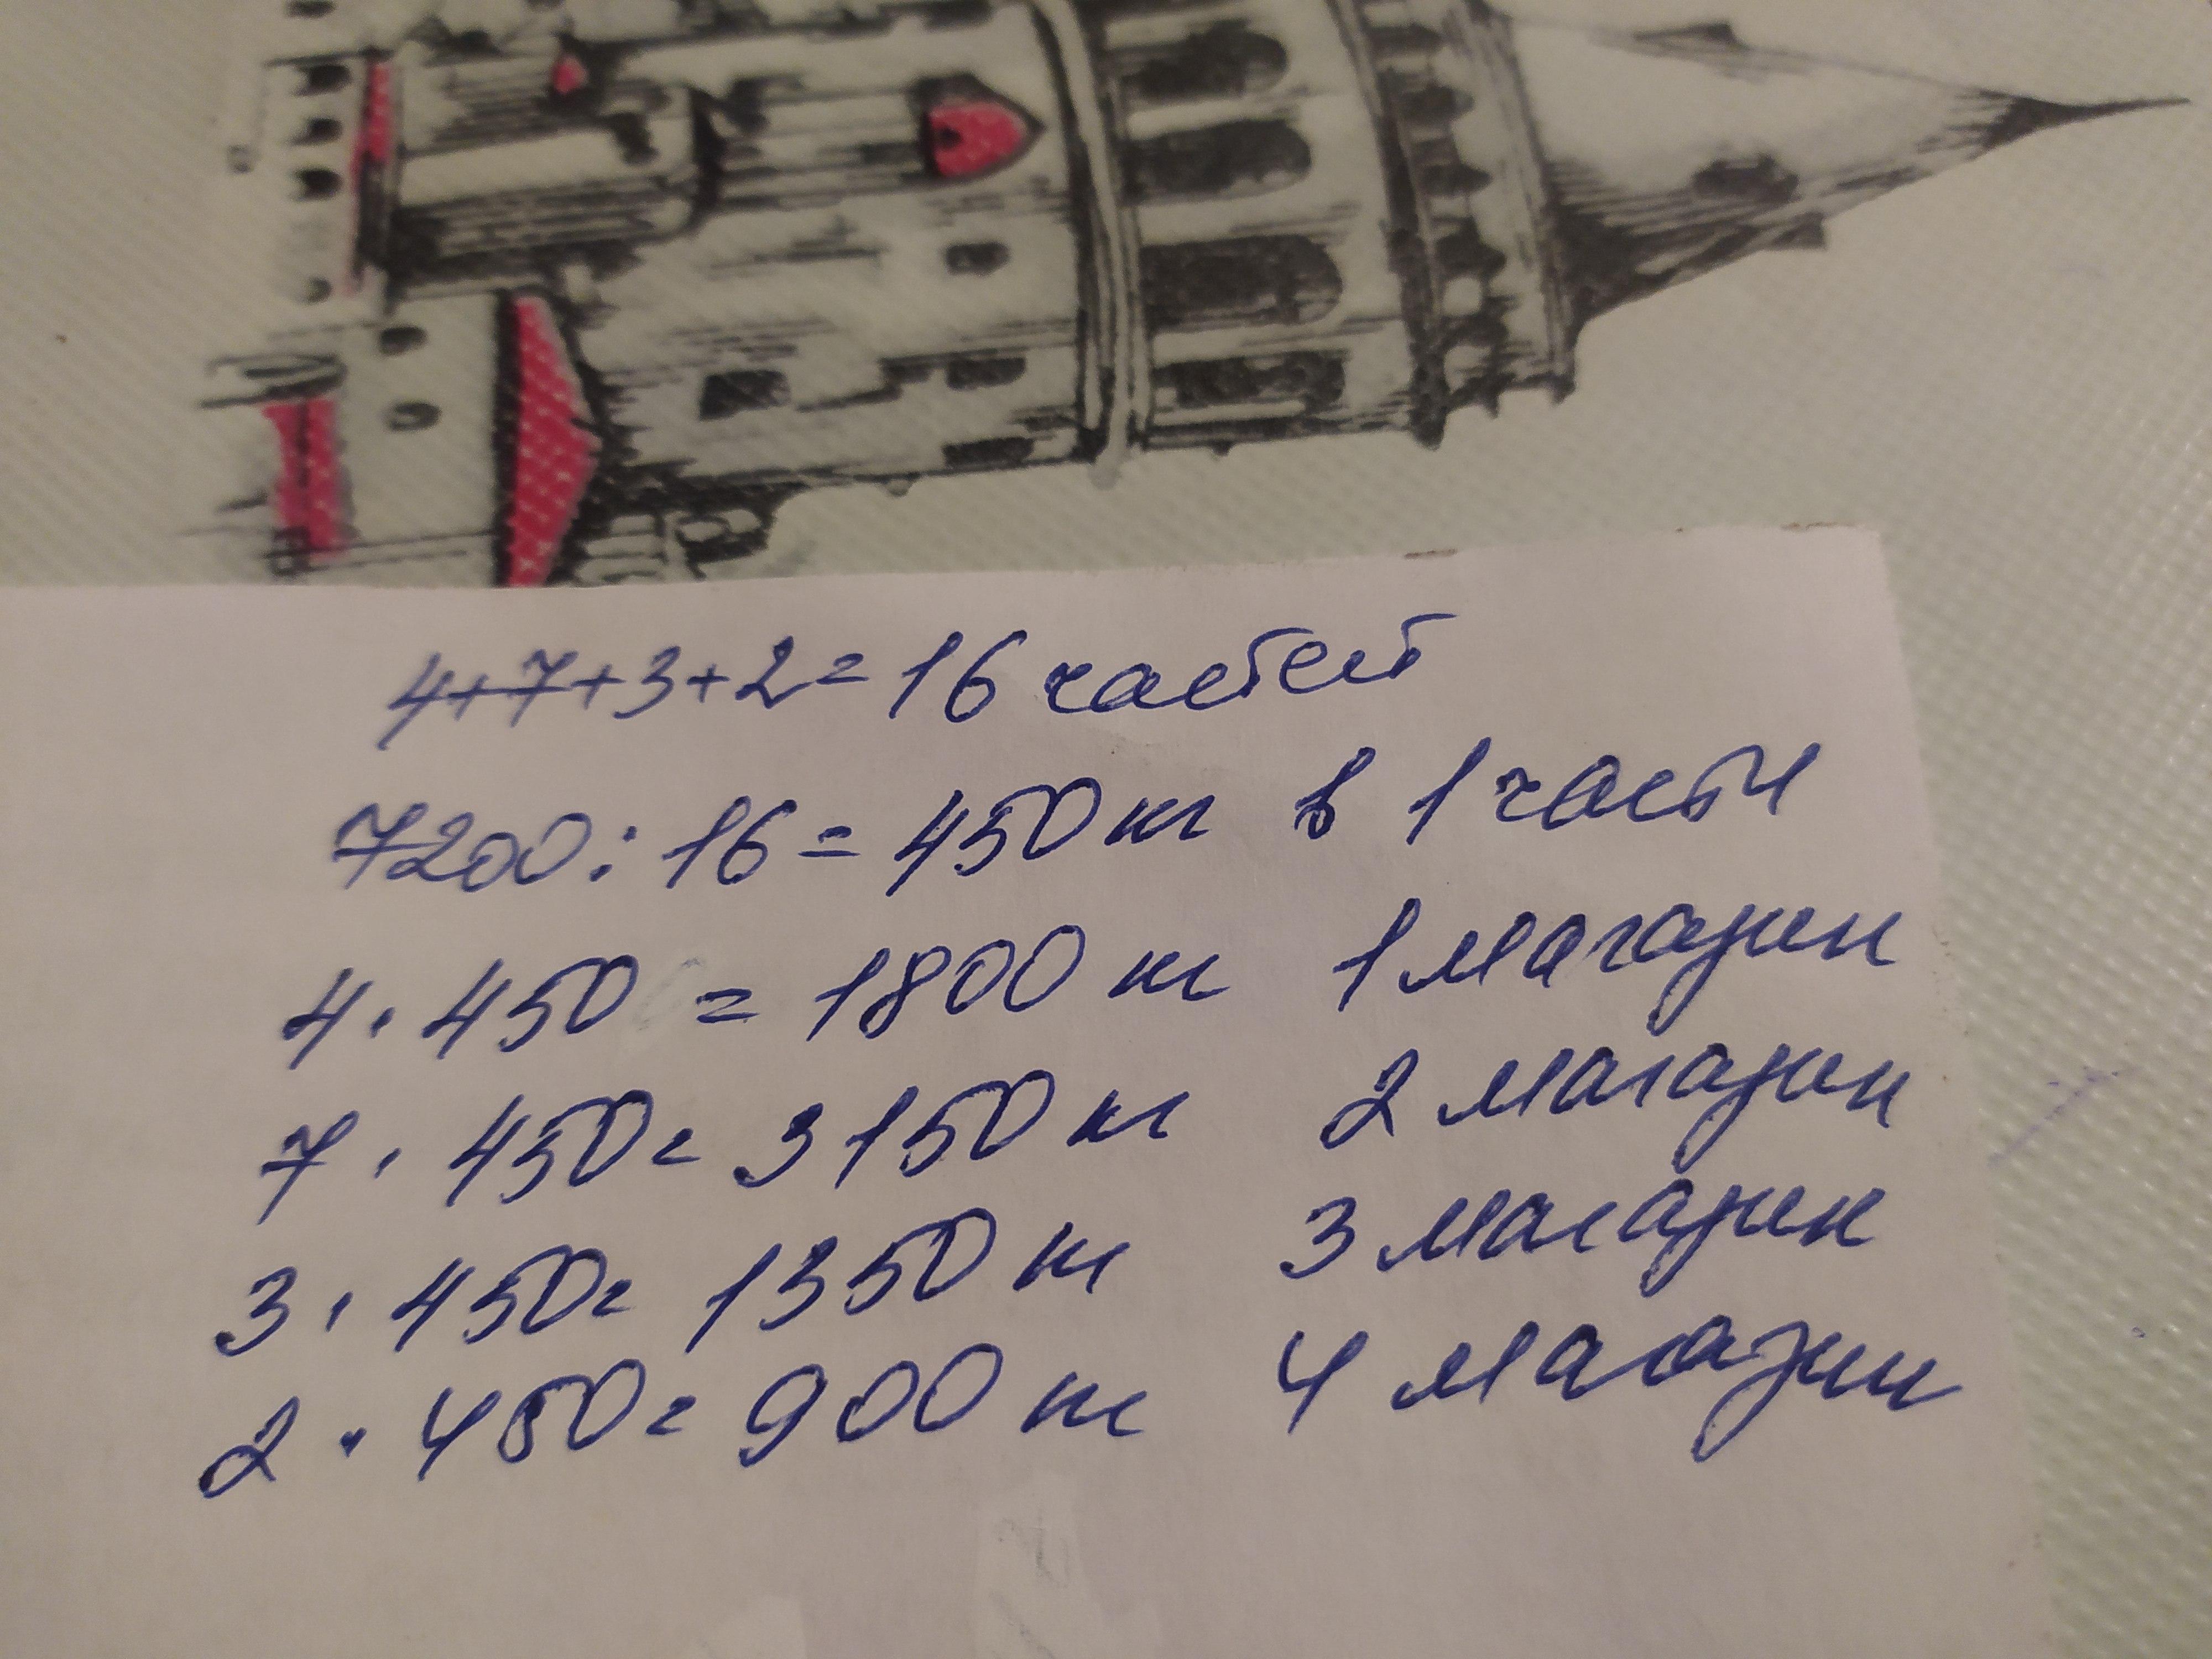 4+7+3+2=16 частей
7200:16=450 кг в 1 части
4·450=1800 кг 1 магазин
7·450=3150 кг 2 магазин
3·450=1350 кг 3 магазин
2·450=900 кг 4 магазин